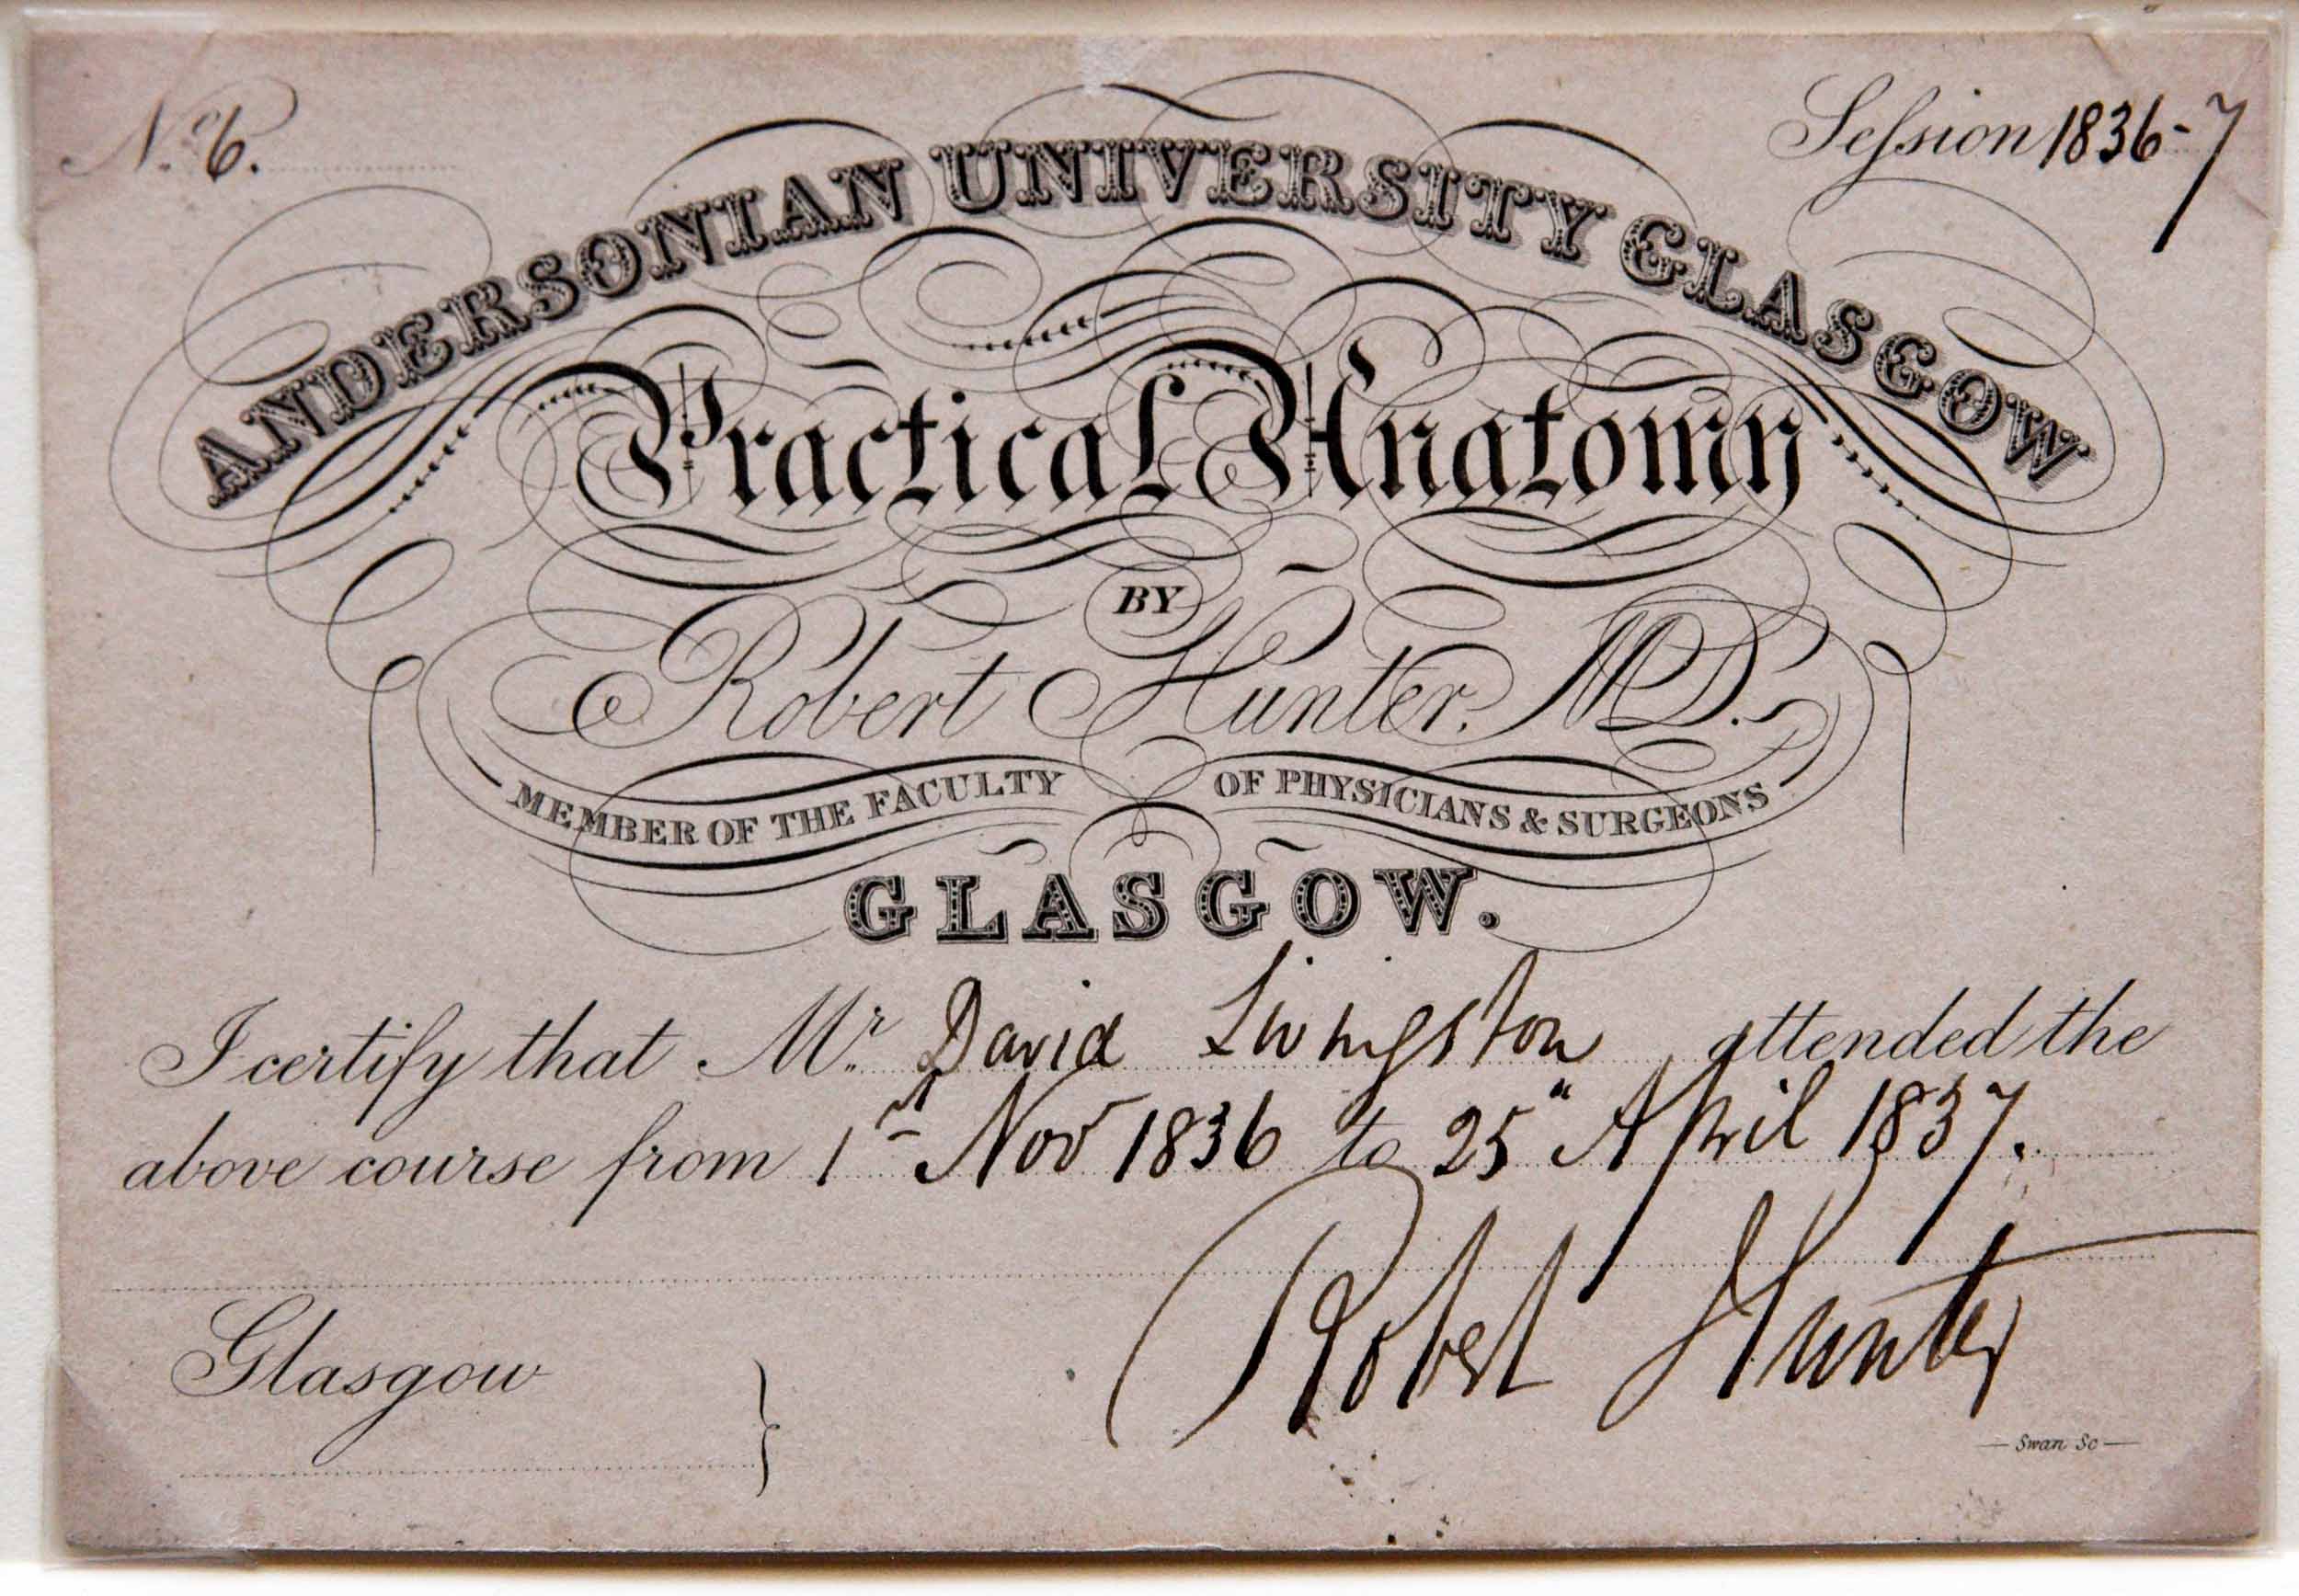 No. 6.
Session 1836-7
ANDERSONIAN UNIVERSITY GLASGOW
Practical Anatomy
BY
Robert Hunter, M.D.
MEMBER OF THE FACULTY OF PHYSICIANS & SURGEONS
GLASGOW.
I certify that Mr. David Livingston attended the
above course from 1st Nov 1836 to 25" April 1837.
Robert Hunter
Glasgow
Swan Sc